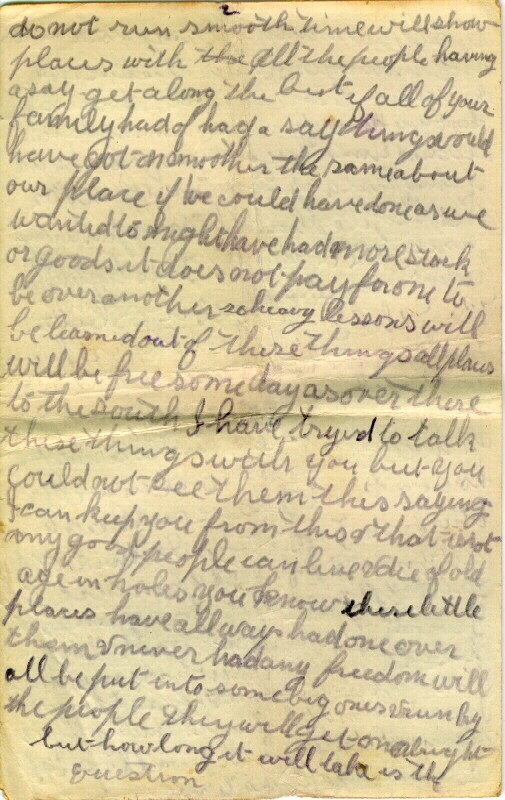 2
do not run smooth time will show
places with the all the people having
a say get along the best if all of your
family had of had a say things would
have got on smoother the same about
our place if we could have done as we
wanted to might have had more stock
or goods it does not pay for one to
be over another so heavy lessons will
be learned out of these things all places
will be free some day as over there
to the south I have tryed to talk
these things with you but you
could not see them this saying
I can keep you from this & that is not
any good people can live & die of old
age in holes you know these little
places have allways had one over
them & never had any freedom will
all be put into some big ones & run by
the people & they will get on alright
but how long it will take is the
question